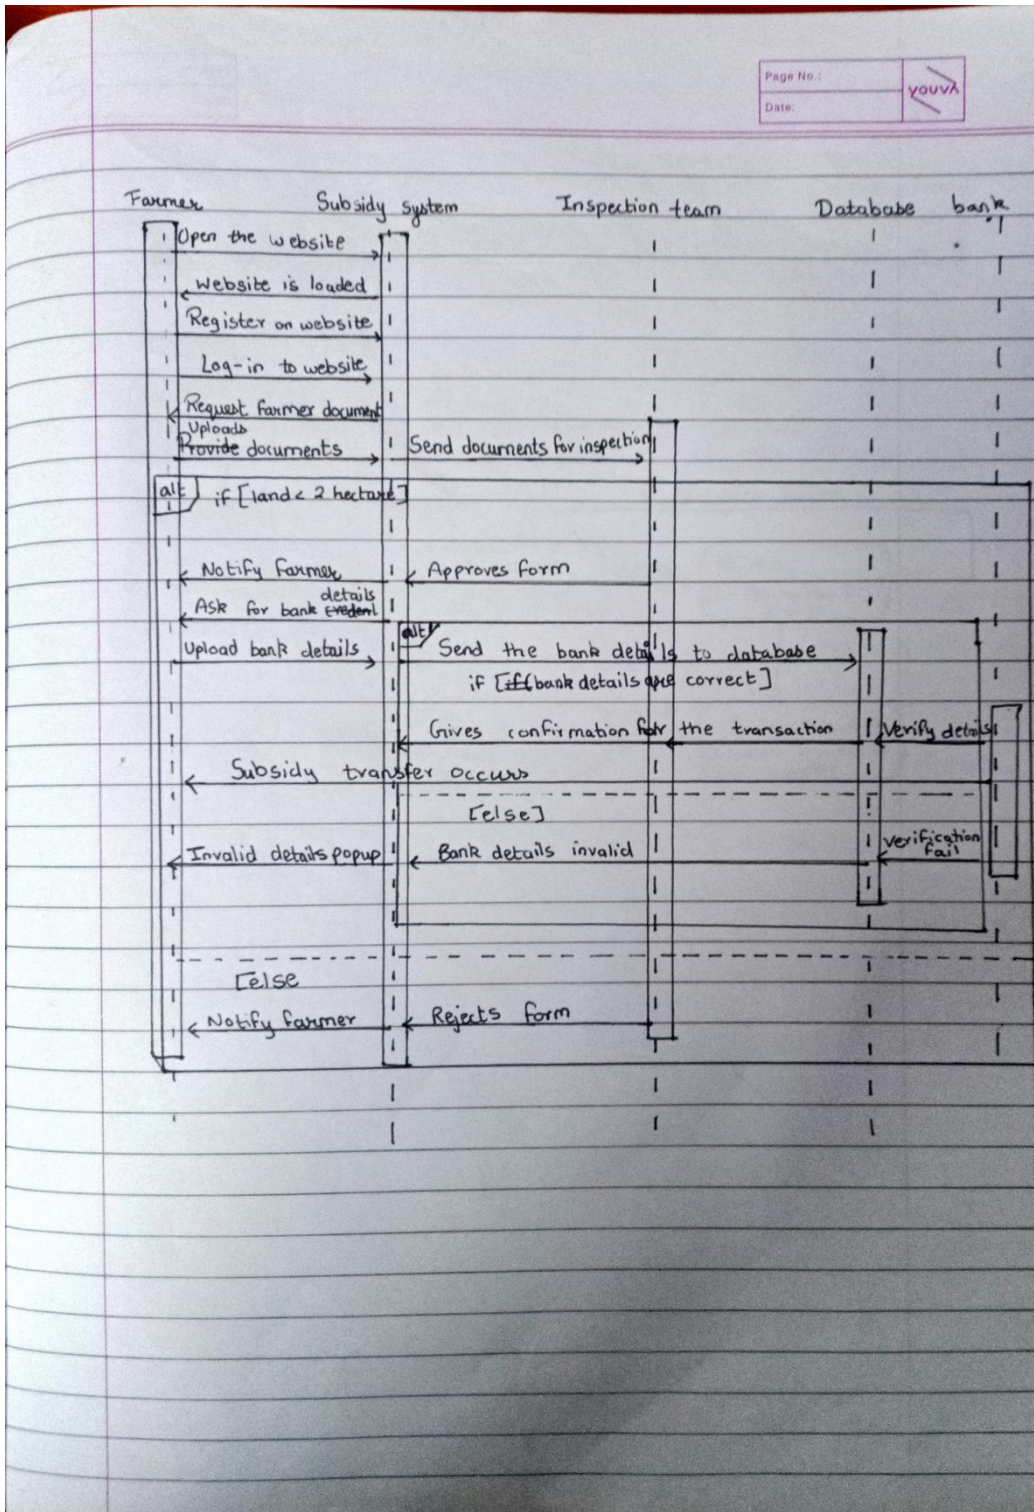 Page No.:
Date:
YOUVA
Farmer Subsidy system Inspection team Database bank
Open the website
Website is loaded
Register on website
Log-in to website
Request farmer document
Uploads
Provide documents Send documents for inspection
alt if [land < 2 hectare]
Notify farmer Approves form
details
Ask for bank credent
alt
Upload bank details Send the bank details to database
if [if (bank details are correct]
Gives confirmation for the transaction Verify details
Subsidy transfer occurs
[else]
Invalid details popup Bank details invalid verification
fail
[else
Notify farmer Rejects form